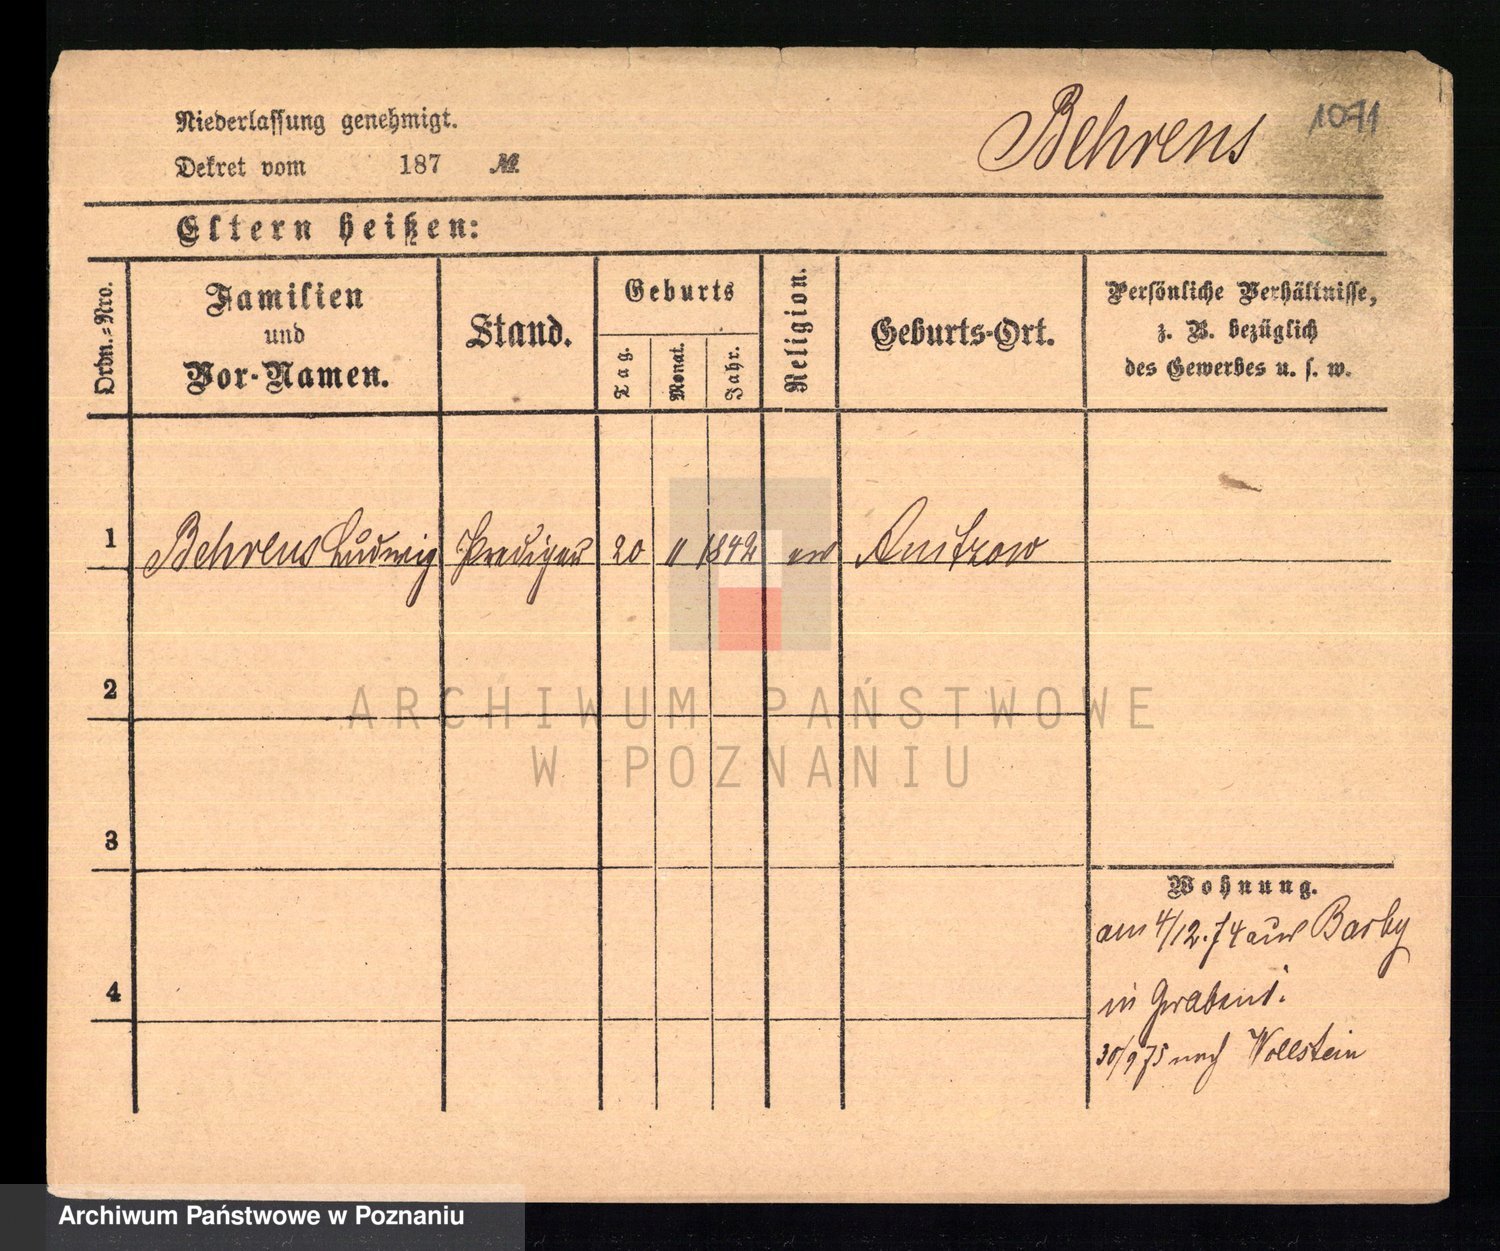 Niederlassung genehmigt.
Dekret vom 187 №
Behrens
1071
Eltern heißen:
Ordn.=Nro.
Familien
und
Vor-Namen.
Stand.
Geburts
Tag.
Monat.
Jahr.
Religion.
Geburts-Ort.
Persönliche Verhältnisse,
z. B. bezüglich
des Gewerbes u. s. w.
1 Behrens Ludwig Prediger 20 11 1842 ev
2
3
4
Wohnung.
am 4/12.74 aus Barby
in
30/9 75 nach Wollstein
ARCHIWUM PAŃSTWOWE
W POZNANIU
Archiwum Państwowe w Poznaniu